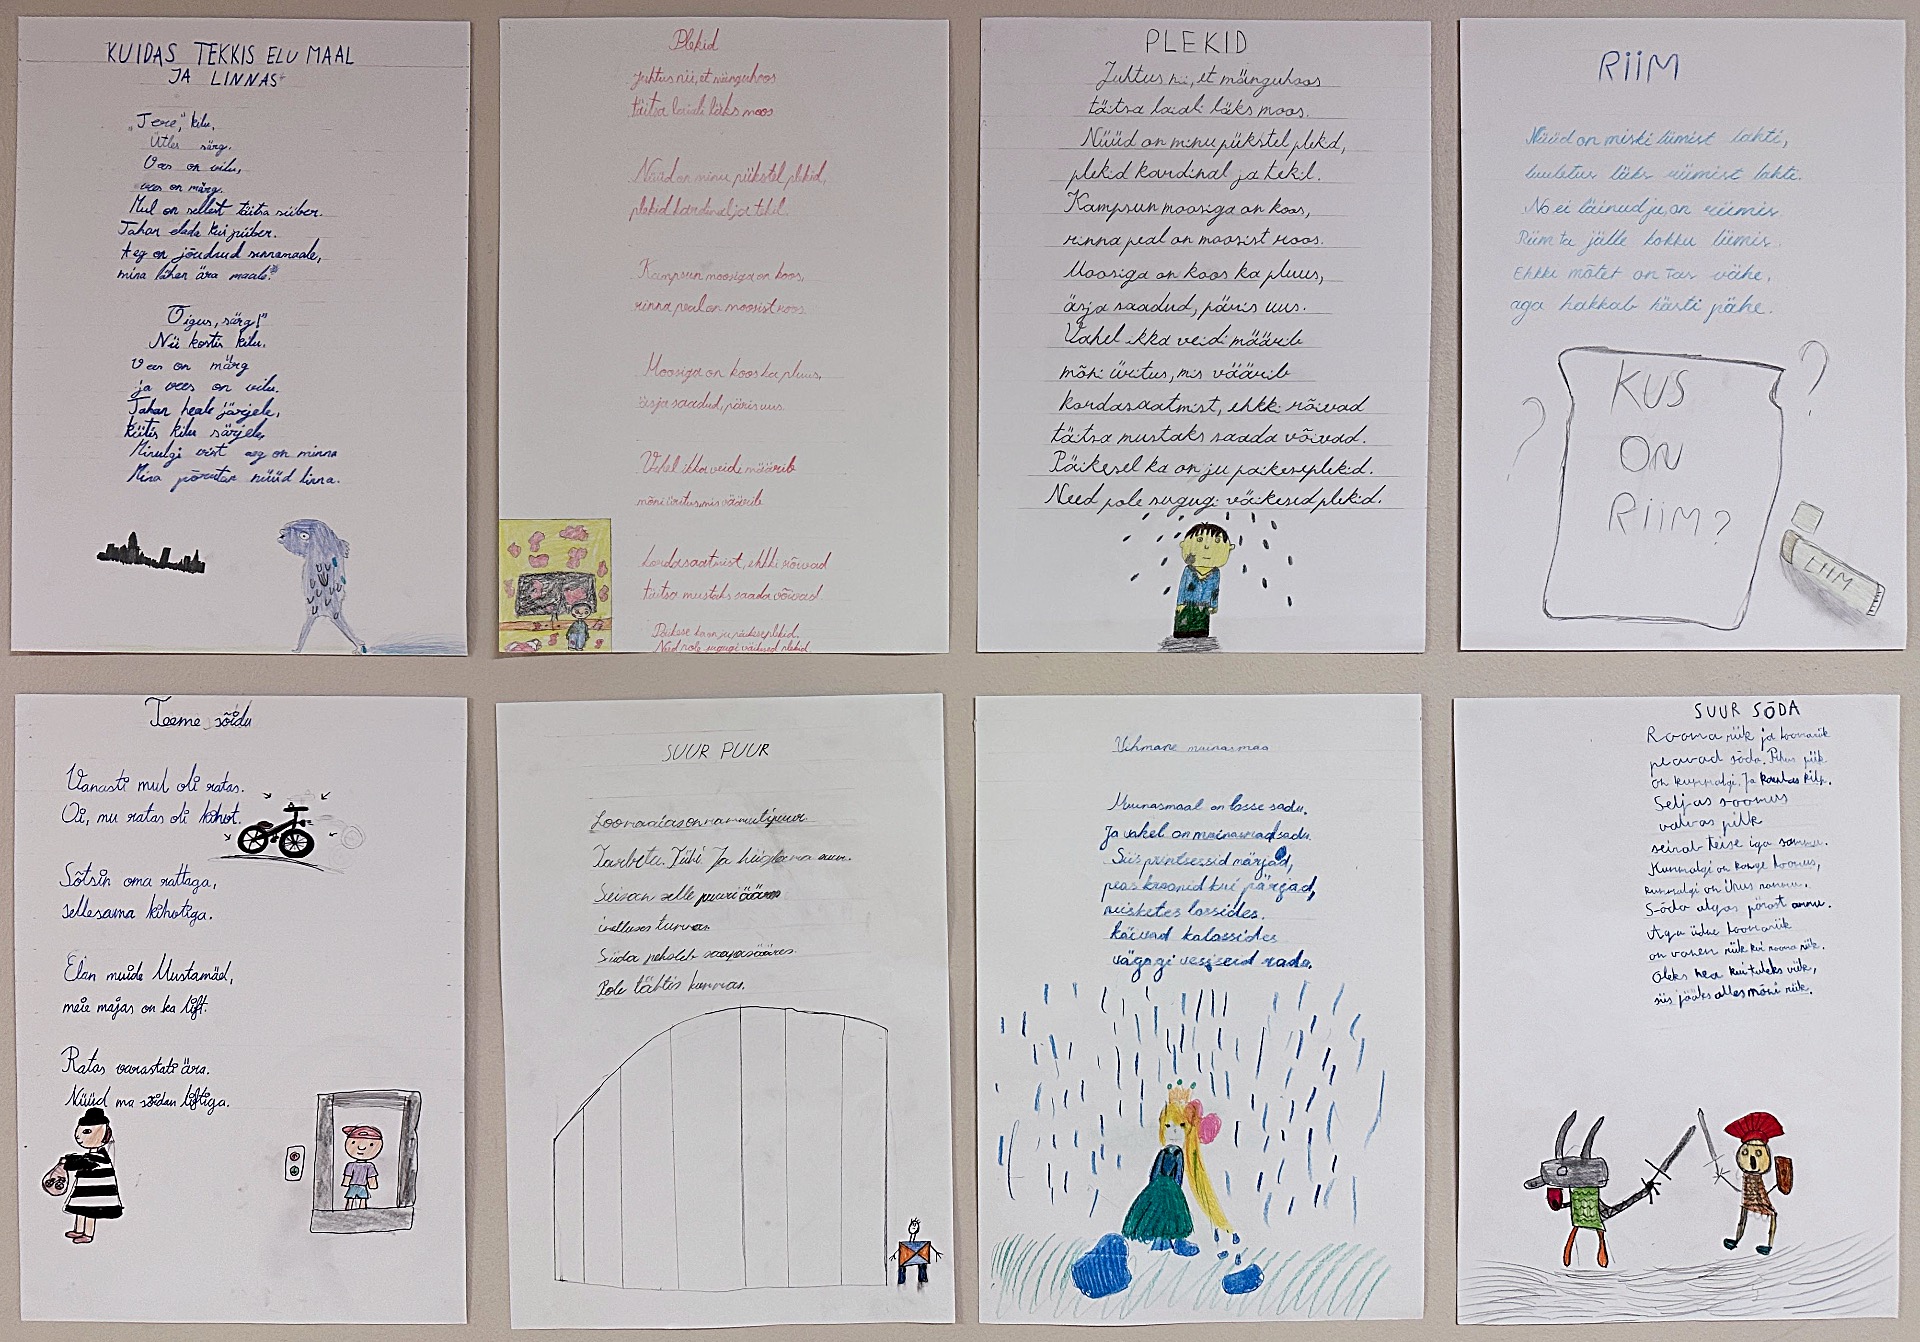 KUIDAS TEKKIS ELU MAAL
JA LINNAS
„Tere," kilu,
Ütles särg.
Vees on vilu,
vees on märg.
Mul on sellest täitsa siiber.
Tahan elada kui piiber.
Aeg on jõudnud sinnamaale,
mina lähen ära maale."
Õigus, särg!"
Nii kostis kilu.
Vees on märg
ja vees on vilu.
Tahan heale järjele,
kiitis kilu särjele,
Minulgi vist aeg on minna
Mina põrutan nüüd linna.
Plekid
Juhtus nii, et mänguhoos
täitsa laiali läks moos.
Nüüd on minu pükstel plekid,
plekid kardinal ja tekil.
Kampsun moosiga on koos,
rinna peal on moosist roos.
Moosiga on koos ka pluus,
äsja saadud, päris uus.
Vahel ikka veidi määrib
mõni üritus, mis väärib
kordasaatmist, ehkki rõivad
täitsa mustaks saada võivad.
Päikese ka on ju päikeseplekid.
Need pole sugugi väiksed plekid.
PLEKID
Juhtus nii, et mänguhoos
täitsa laiali läks moos.
Nüüd on minu pükstel plekid,
plekid kardinal ja tekil.
Kampsun moosiga on koos,
rinna peal on moosist roos.
Moosiga on koos ka pluus,
äsja saadud, päris uus.
Vahel ikka veidi määrib
mõni üritus, mis väärib
kordasaatmist, ehkki rõivad
täitsa mustaks saada võivad.
Päikesel ka on ju päikeseplekid.
Need pole sugugi väikesed plekid.
RIIM
Nüüd on miski liimist lahti,
luuletus läks riimist lahti.
No ei läinud ju, on riimis
Riim ta jälle kokku liimis.
Ehkki mõtet on tas vähe,
aga hakkab hästi pähe.
?
?
KUS
ON
RIIM?
LIIM
Teeme sõidu
Vanasti mul oli ratas.
Oi, mu ratas oli kihvt.
Sõtsin oma rattaga,
sellesama kihvtiga.
Elan muide Mustamäel,
meie majas on ka lift.
Ratas varastati ära.
Nüüd ma sõidan liftiga.
SUUR PUUR
Loomaaias on raamuli puur.
Tarbetu. Tühi. Ja hiiglama suur.
Seisan selle puuri ääres
ilulises turvas.
Süda peksleb saapasääres.
Pole tähtis kurvas.
Vihmane muinasmaa
Muinasmaal on losse sadu.
Ja vahel on muinasmaal sadu.
Siis printsessid märjad,
peas kroonid kui pärjad,
niisketes lossides.
käivad kalossides
vägagi vesiseid radu.
SUUR SÕDA
Rooma riik ja loomariik
peavad sõda. Pihus piik
on kummalgi. Ja kaenlas kilp.
Seljas soomus
valvas pilk
seirab teise iga sammu.
Kummalgi on kange loomus,
kummalgi on ihus rammu.
Sõda algas pärast ammu.
Aga üdne loomariik
on vanem riik kui rooma riik.
Oleks hea kui tuleks viik,
siis jääks alles mõni riik.